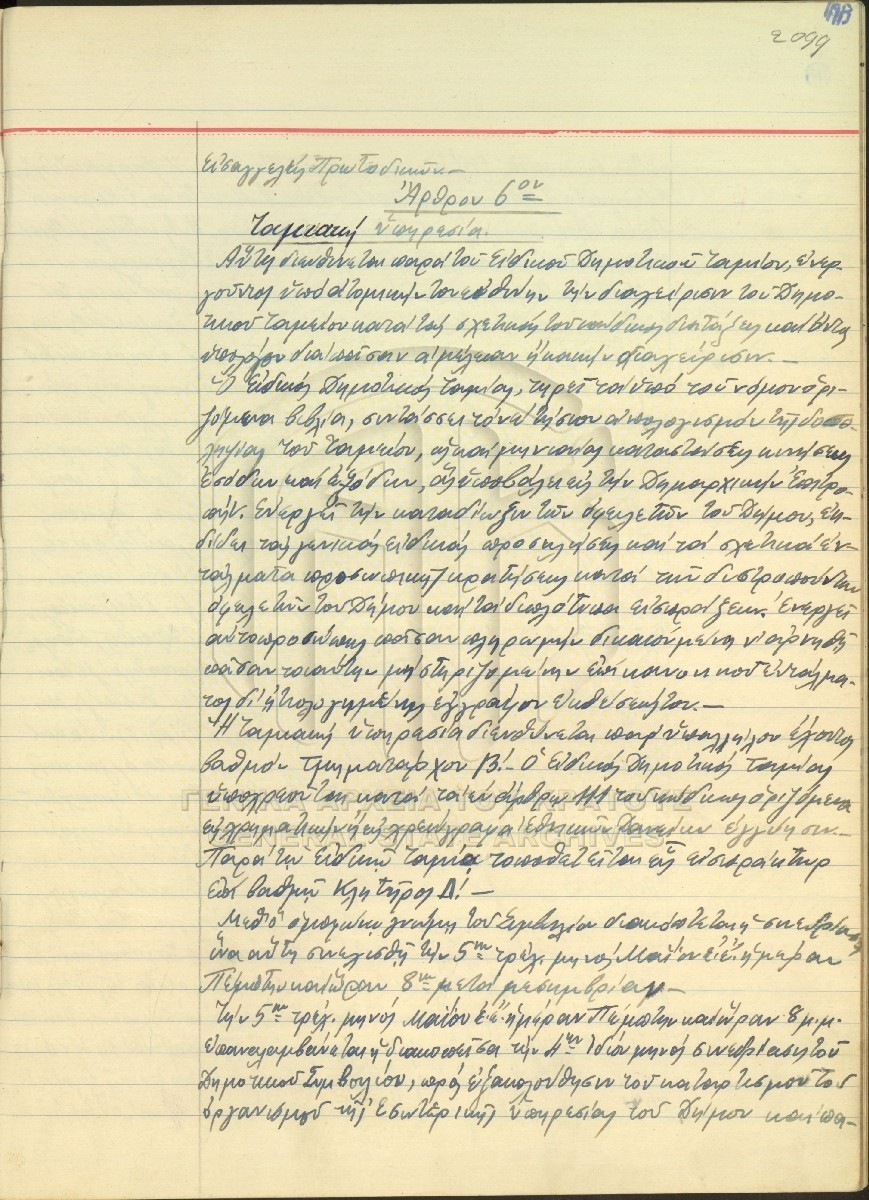 2099
Εἰσαγγελεὺς Πρωτοδικῶν.—
Ἄρθρον 6ον
Ταμιακὴ ὑπηρεσία.
Αὕτη διευθύνεται παρὰ τοῦ Εἰδικοῦ Δημοτικοῦ Ταμίου, ἐνερ-
γοῦντος ὑπὸ ἀτομικήν του εὐθύνην τὴν διαχείρισιν τοῦ Δημο-
τικοῦ Ταμείου κατὰ τὰς σχετικὰς τοῦ κώδικος διατάξεις καὶ ὄντος
ὑπολόγου διὰ πᾶσαν ἀμέλειαν ἢ κακὴν διαχείρισιν.—
Ὁ Εἰδικὸς Δημοτικὸς Ταμίας, τηρεῖ τὰ ὑπὸ τοῦ νόμου ὁρι-
ζόμενα βιβλία, συντάσσει τὸν ἐτήσιον ἀπολογισμὸν τῆς
τοῦ Ταμείου, ὡς καὶ μηνιαίας καταστάσεις κινήσεως
ἐσόδων καὶ ἐξόδων, ἃς ὑποβάλει εἰς τὴν Δημαρχικὴν Ἐπιτρο-
πήν. Ἐνεργεῖ τὴν καταδίωξιν τῶν ὀφειλετῶν τοῦ Δήμου, ἐκ-
δίδει τὰς γενικὰς εἰδικὰς προσκλήσεις καὶ τὰ σχετικὰ ἐν-
τάλματα προσωπικῆς κρατήσεως κατὰ τῶν δυστροπούντων
ὀφειλετῶν τοῦ Δήμου καὶ τὰ διπλότυπα εἰσπράξεων. Ἐνεργεῖ
αὐτοπροσώπως πᾶσαν πληρωμὴν δικαιούμενος ν' ἀρνηθῇ
πᾶσαν τοιαύτην μὴ στηριζομένην ἐπὶ κανονικοῦ ἐντάλμα-
τος δι' ᾐτιολογημένης ἐγγράφου ἐκθέσεώς του.—
Ἡ ταμιακὴ ὑπηρεσία διευθύνεται παρ' ὑπαλλήλου ἔχοντος
βαθμὸν Τμηματάρχου Β!— Ὁ Εἰδικὸς Δημοτικὸς Ταμίας
ὑποχρεοῦται κατὰ τὰ ἐν ἄρθρῳ τοῦ κώδικος ὁριζόμενα
εἰς χρηματικὴν ἢ εἰς χρεώγραφα ἐθνικῶν δανείων ἐγγύησιν.—
Παρὰ τῷ Εἰδικῷ Ταμίᾳ τοποθετεῖται εἷς εἰσπράκτωρ
ἐπὶ βαθμῷ Κλητῆρος Δ!—
Μεθ' ὃ ὁμοφώνῳ γνώμῃ τοῦ Συμβουλίου διακόπτεται ἡ συνεδρίασις
ἵνα αὕτη συνεχισθῇ τὴν 5ην τρέχ. μηνὸς Μαΐου ἐ.ἔ. ἡμέραν
Πέμπτην καὶ ὥραν 8ην μετὰ μεσημβρίαν.—
Τὴν 5ην τρέχ. μηνὸς Μαΐου ἐ.ἔ. ἡμέραν Πέμπτην καὶ ὥραν 8 μ.μ.
ἐπαναλαμβάνεται ἡ διακοπεῖσα τὴν 4ην ἰδίου μηνὸς συνεδρίασις τοῦ
Δημοτικοῦ Συμβουλίου, πρὸς ἐξακολούθησιν τοῦ καταρτισμοῦ τοῦ
ὀργανισμοῦ τῆς ἐσωτερικῆς ὑπηρεσίας τοῦ Δήμου καὶ πα-
ΓΕΝΙΚΑ ΑΡΧΕΙΑ ΤΟΥ ΚΡΑΤΟΥΣ
GENERAL STATE ARCHIVES